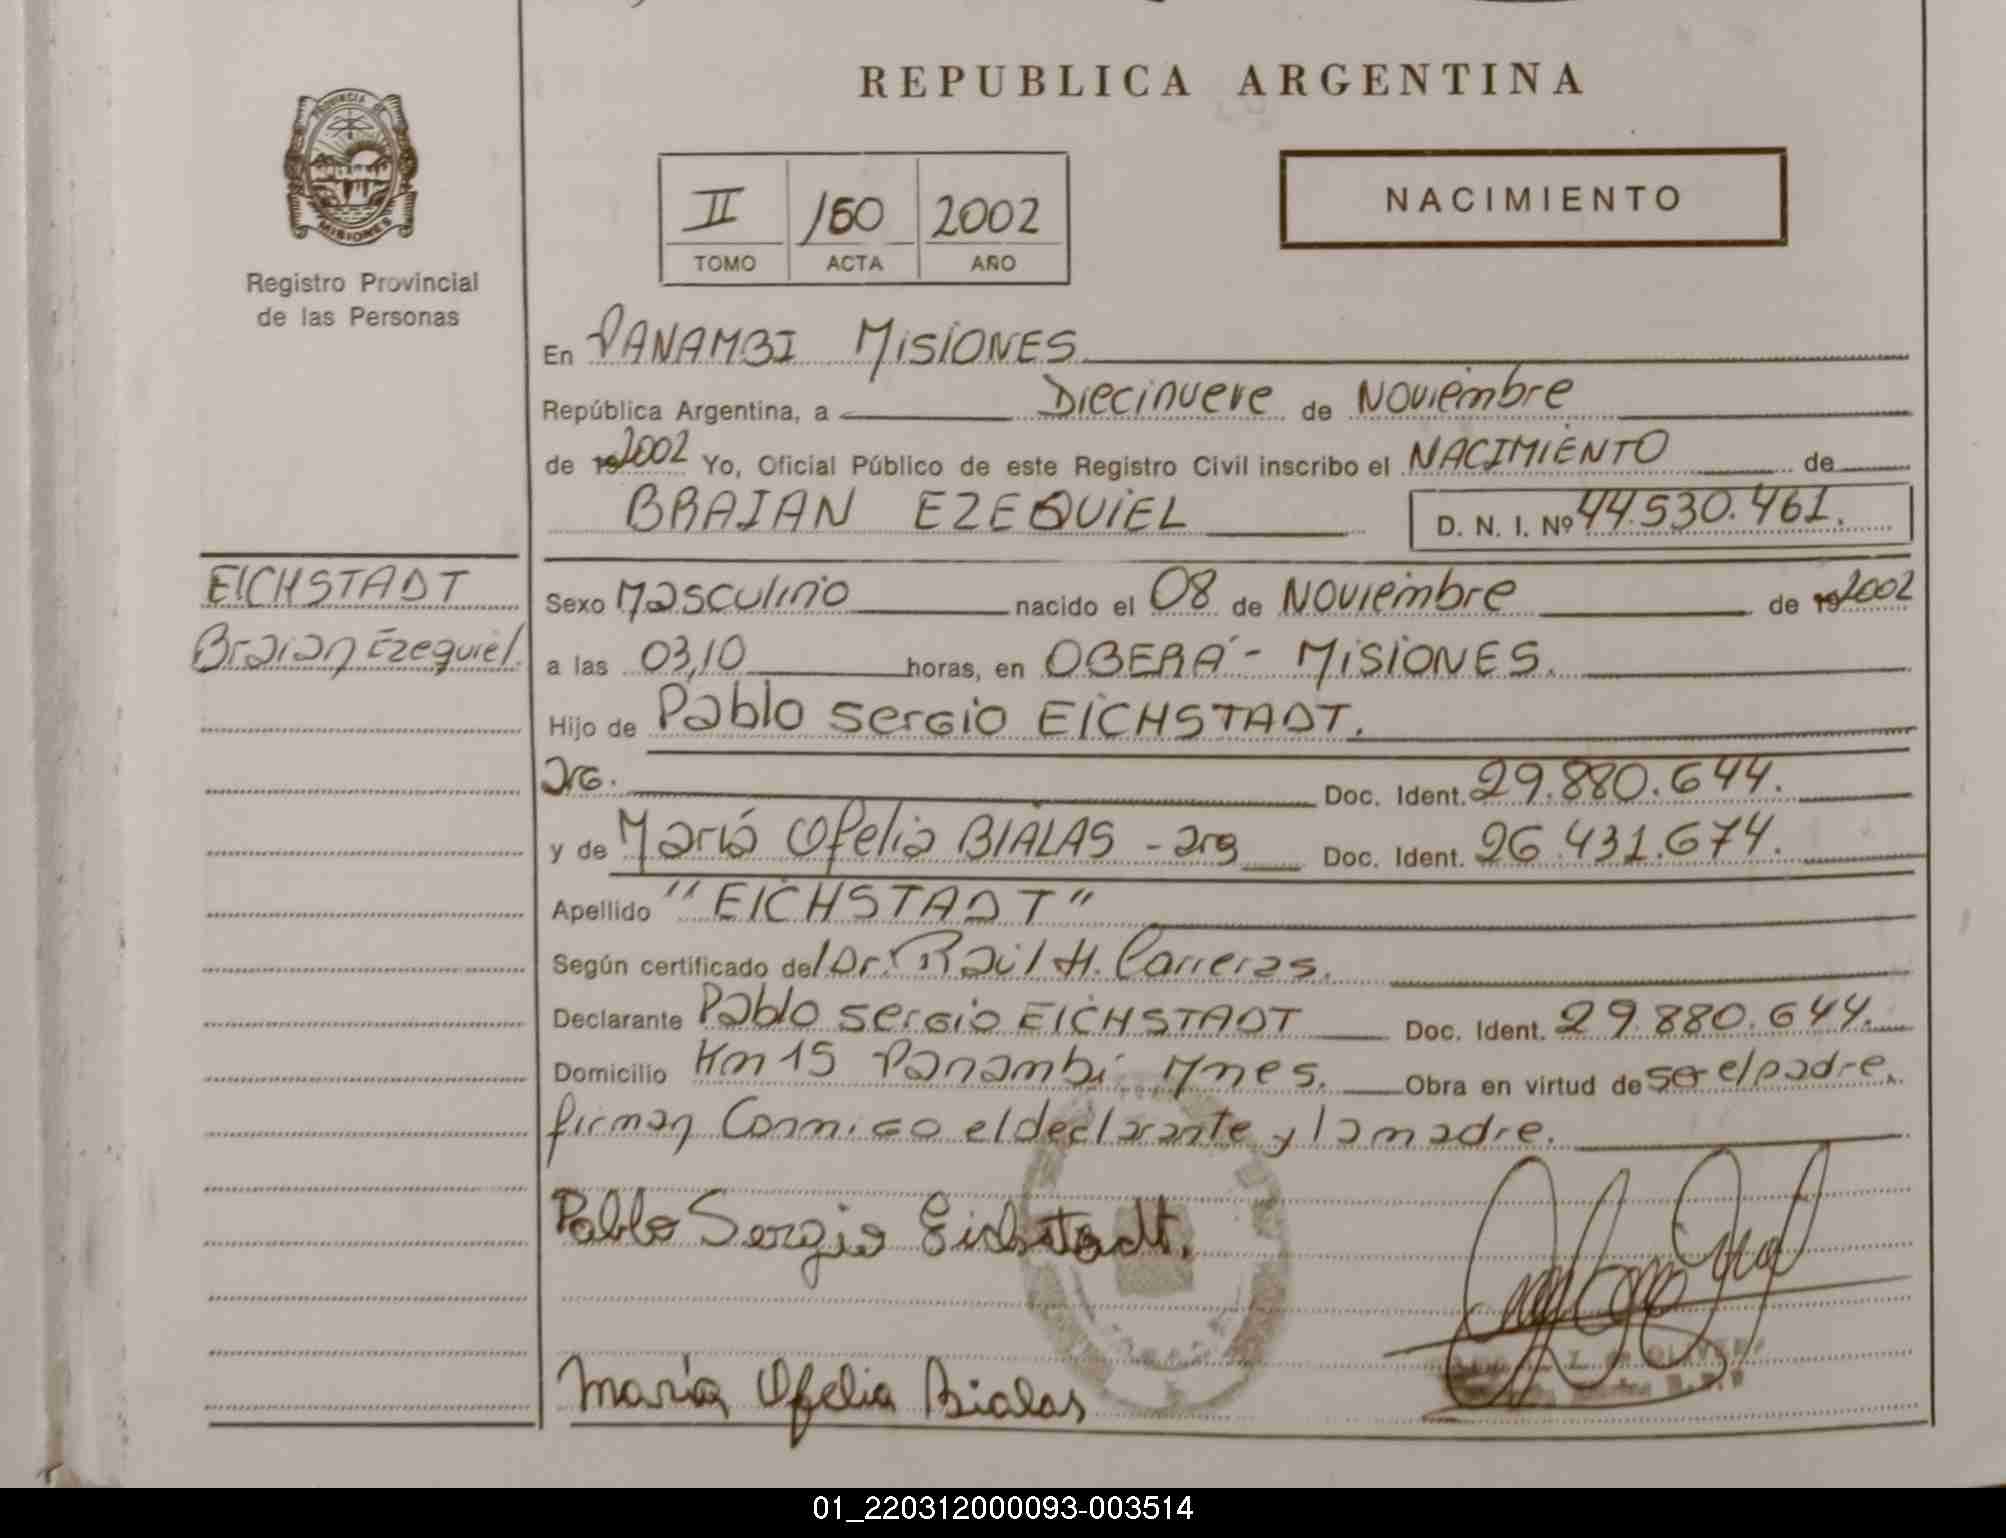 REPUBLICA ARGENTINA
PROVINCIA DE
MISIONES
Registro Provincial
de las Personas
II /50 2002
TOMO ACTA AÑO
NACIMIENTO
En PANAMBI MISIONES
República Argentina, a Diecinueve de Noviembre
de 192002 Yo, Oficial Público de este Registro Civil inscribo el NACIMIENTO de
BRAIAN EZEQUIEL D. N. I. Nº 44.530.461.
EICHSTADT
Braian Ezequiel.
Sexo Masculino nacido el 08 de Noviembre de 192002
a las 03,10 horas, en OBERÁ - MISIONES.
Hijo de Pablo Sergio EICHSTADT.
Arg. Doc. Ident. 29.880.644.
y de María Ofelia BIALAS - arg Doc. Ident. 26.431.674.
Apellido "EICHSTADT"
Según certificado del Dr. Raúl H. Carreras.
Declarante Pablo Sergio EICHSTADT Doc. Ident. 29.880.644.
Domicilio Km 15 Panambi Mnes. Obra en virtud de ser el padre.
firman Conmigo el declarante y la madre.
Pablo Sergio Eichstadt.
María Ofelia Bialas
01_220312000093-003514